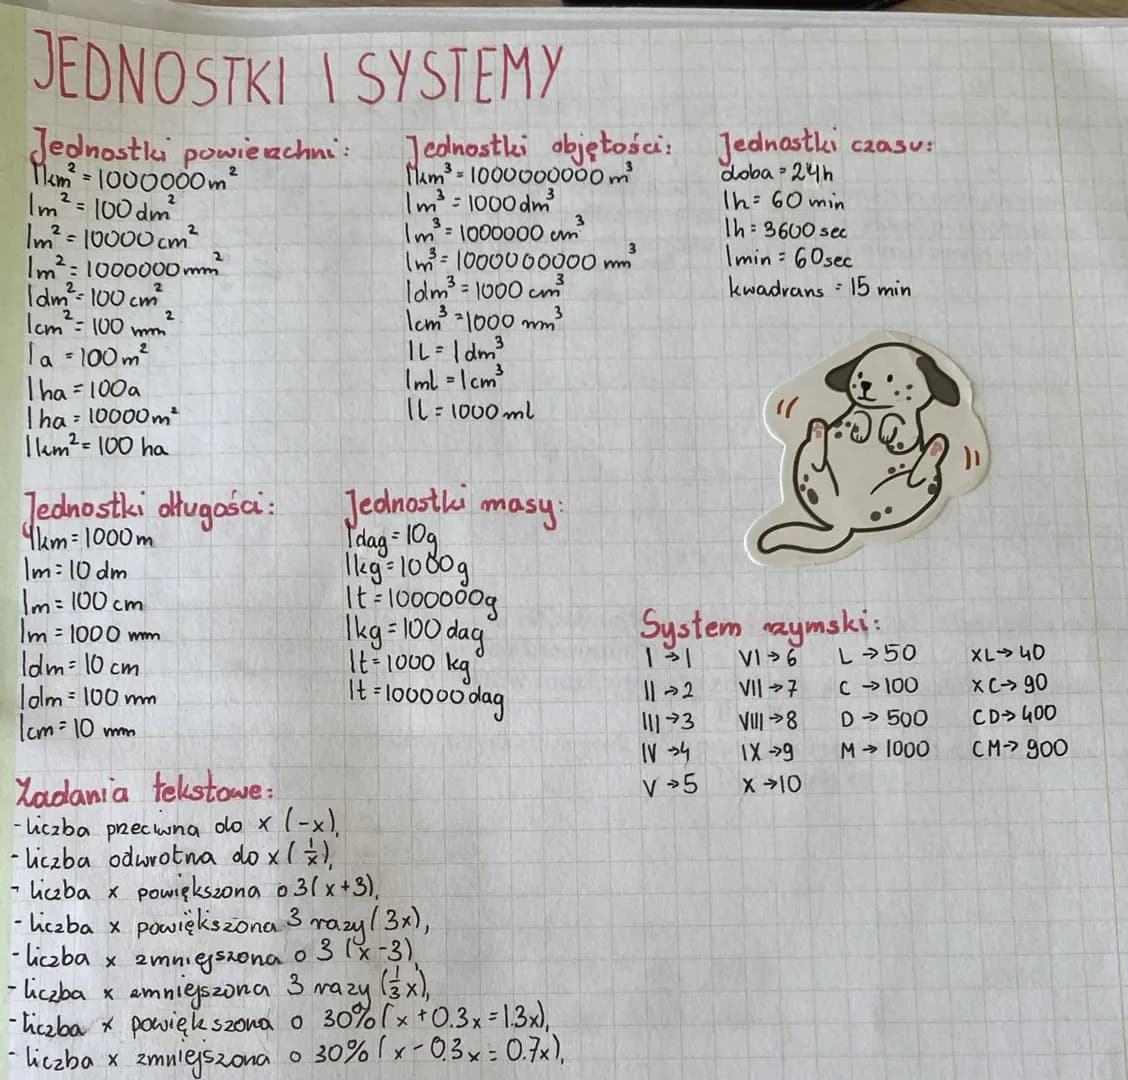 JEDNOSTKI I SYSTEMY
Jednostki powierzchni:
1km² = 1000000m²
1m² = 100dm²
1m² = 10000cm²
1m² = 1000000mm²
1dm² = 100cm²
1cm² = 100 mm²
1a = 100m²
1ha = 100a
1ha = 10000m²
1km² = 100 ha
Jednostki objętości:
1km³ = 1000000000m³
1m³ = 1000dm³
1m³ = 1000000 cm³
1m³ = 1000000000 mm³
1dm³ = 1000 cm³
1cm³ = 1000 mm³
1L = 1dm³
1ml = 1cm³
1l = 1000ml
Jednostki czasu:
doba = 24h
1h = 60 min
1h = 3600 sec
1min = 60sec
kwadrans = 15 min
Jednostki długości:
1km = 1000m
1m = 10 dm
1m = 100 cm
1m = 1000 mm
1dm = 10 cm
1dm = 100 mm
1cm = 10 mm
Jednostki masy:
1dag = 10g
1kg = 1000g
1t = 1000000g
1kg = 100 dag
1t = 1000 kg
1t = 100000dag
System rzymski:
I → 1 VI → 6 L → 50 XL → 40
II → 2 VII → 7 C → 100 XC → 90
III → 3 VIII → 8 D → 500 CD → 400
IV → 4 IX → 9 M → 1000 CM → 900
V → 5 X → 10
Zadania tekstowe:
- liczba przeciwna do x (-x),
- liczba odwrotna do x (1/x),
- liczba x powiększona o 3 (x+3),
- liczba x powiększona 3 razy (3x),
- liczba x zmniejszona o 3 (x-3),
- liczba x zmniejszona 3 razy (1/3 x),
- liczba x powiększona o 30% (x+0.3x=1.3x),
- liczba x zmniejszona o 30% (x-0.3x=0.7x),